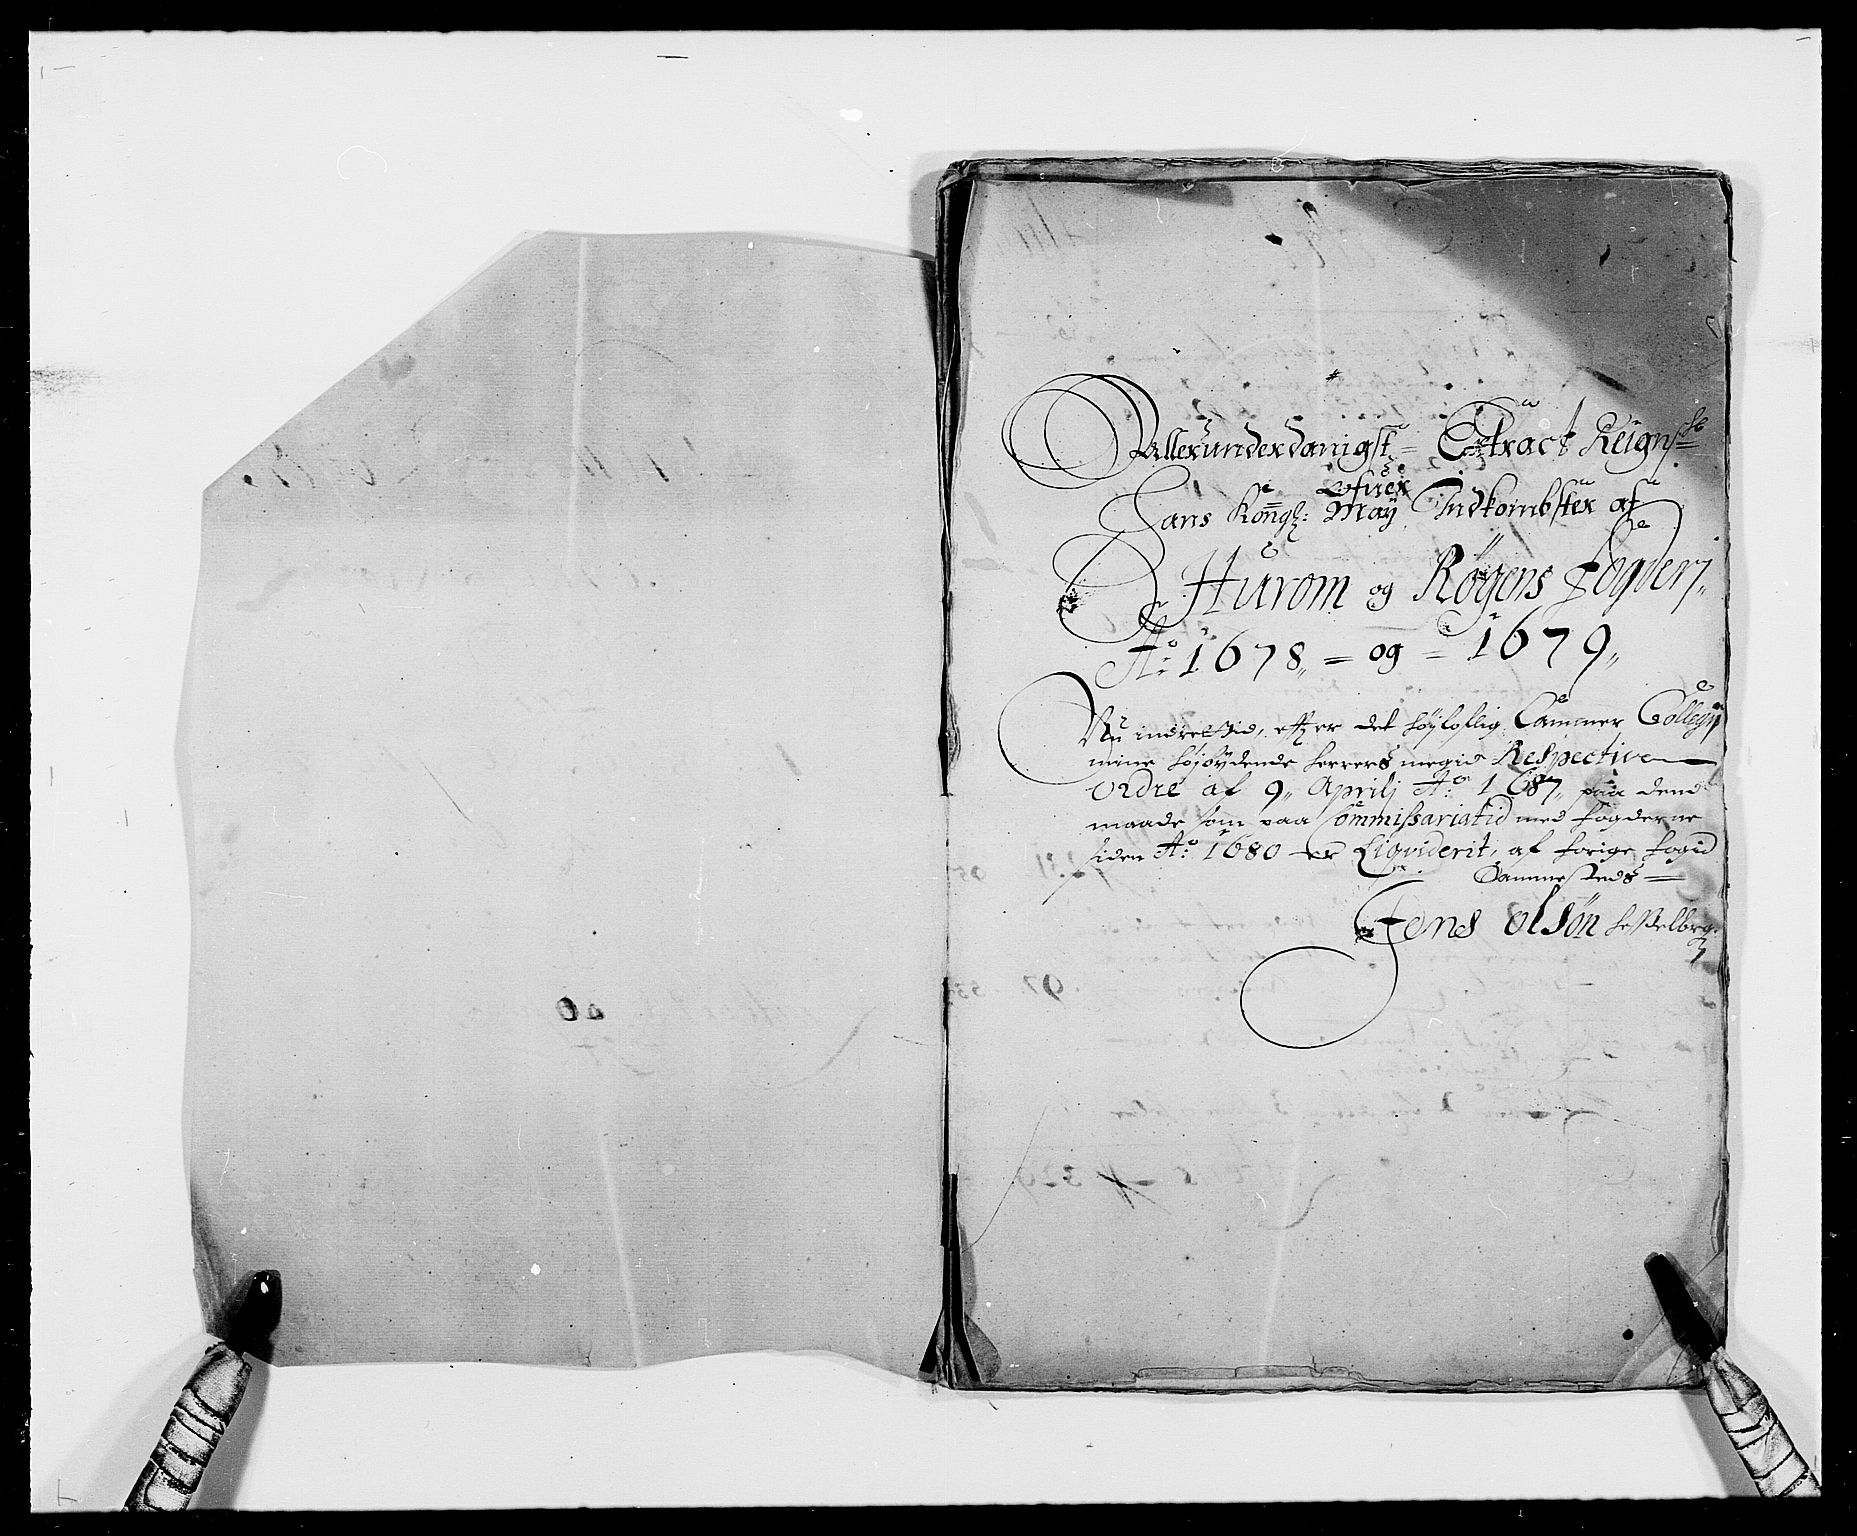 Allerunderdanigst = Extract Reignsk:
ofuer
Hans Kongl: May Indkombster af
Hurom og Røgens fogderj,
A:o 1678, = og = 1679,
Nu indrettid, effter det høyloflig Cammer Collegij
mine høybydende herrers megid Respective
Ordre af 9, Aprilj A:o 1687, paa dend
maade som paa Commissariatid med fogderne
siden A:o 1680 er Liqviderit, af forige fogid
Sammesteds =
Jens Olsøn